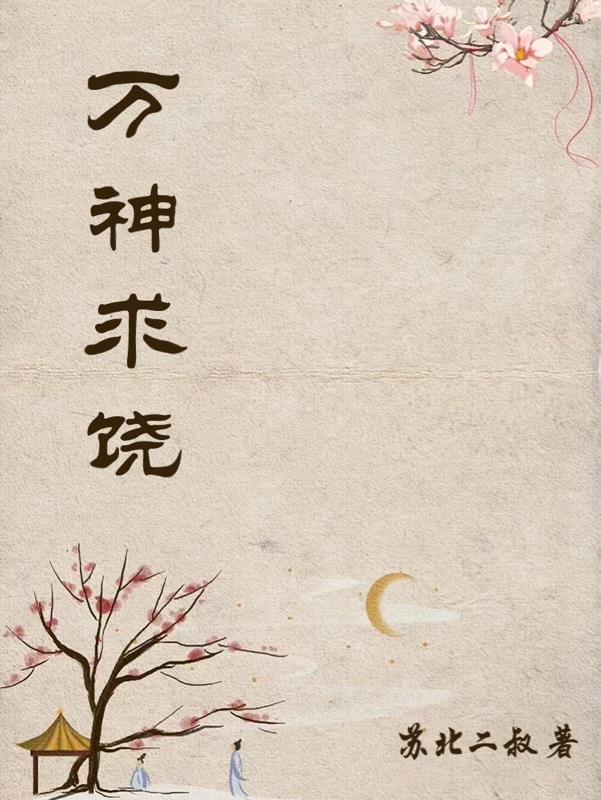 万神求饶
苏北二叔 著